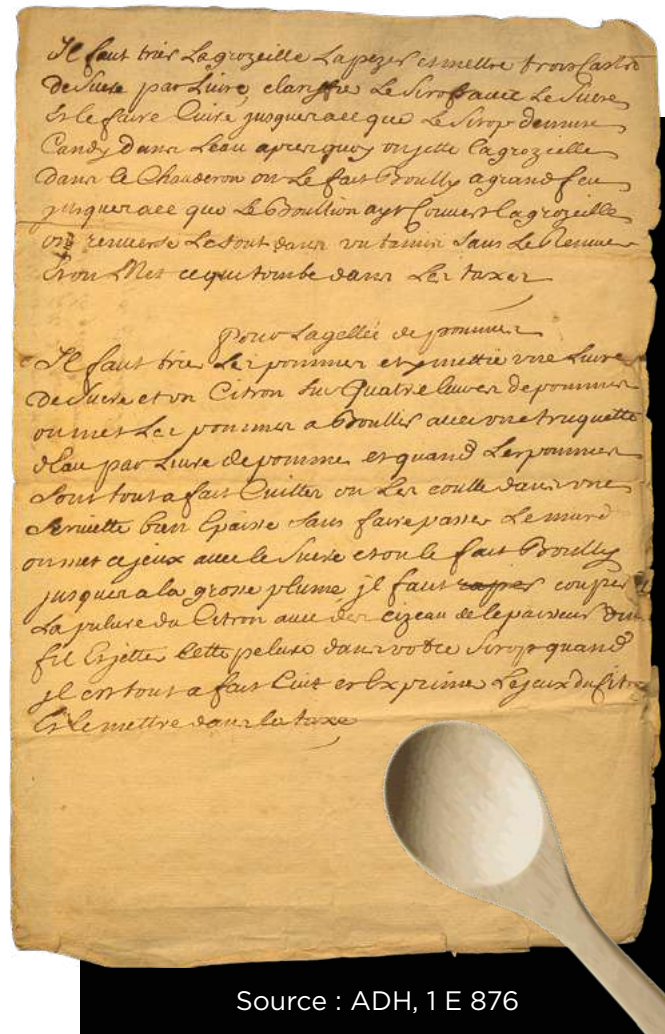 Il faut trier La grozeille La pezer et mettre trois Carts
de Sucre par Livre, clarifie Le Sirop avec Le Sucre
Et le faire Cuire jusquer a ce que Le Sirop demure
Candy dans Leau apres quoy on jette la grozeille
dans le Chauderon on Le fait Boullir a grand feu
jusquer a ce que Le Boullion ayt Couvert la grozeille
on renverse Le tout dans un tamis Sans Le Remuer
Et on Met ce qui tombe dans Les taxes
pour La gellée de pommes
Il faut trier Les pommes et y mettre une Livre
de Sucre et un Citron Sur Quatre livres de pommes
on met Les pommes a Boullir avec une truquette
deau par Livre de pomme et quand Les pommes
Sont tout a fait Cuittes on Les coulle dans une
Serviette bien Epaisse Sans faire passer Le marc
on met ce jeux avec le Sucre et on le fait Boullir
jusquer a la grosse plume, jl faut raper couper
La peluse du Citron avec des cizeau de lepaisseur dun
fil Et jetter Cette peluse dans votre Sirop quand
jl est tout a fait Cuit et Exprimer Le jeux du Citron
Et le mettre dans la taxe
Source : ADH, 1 E 876